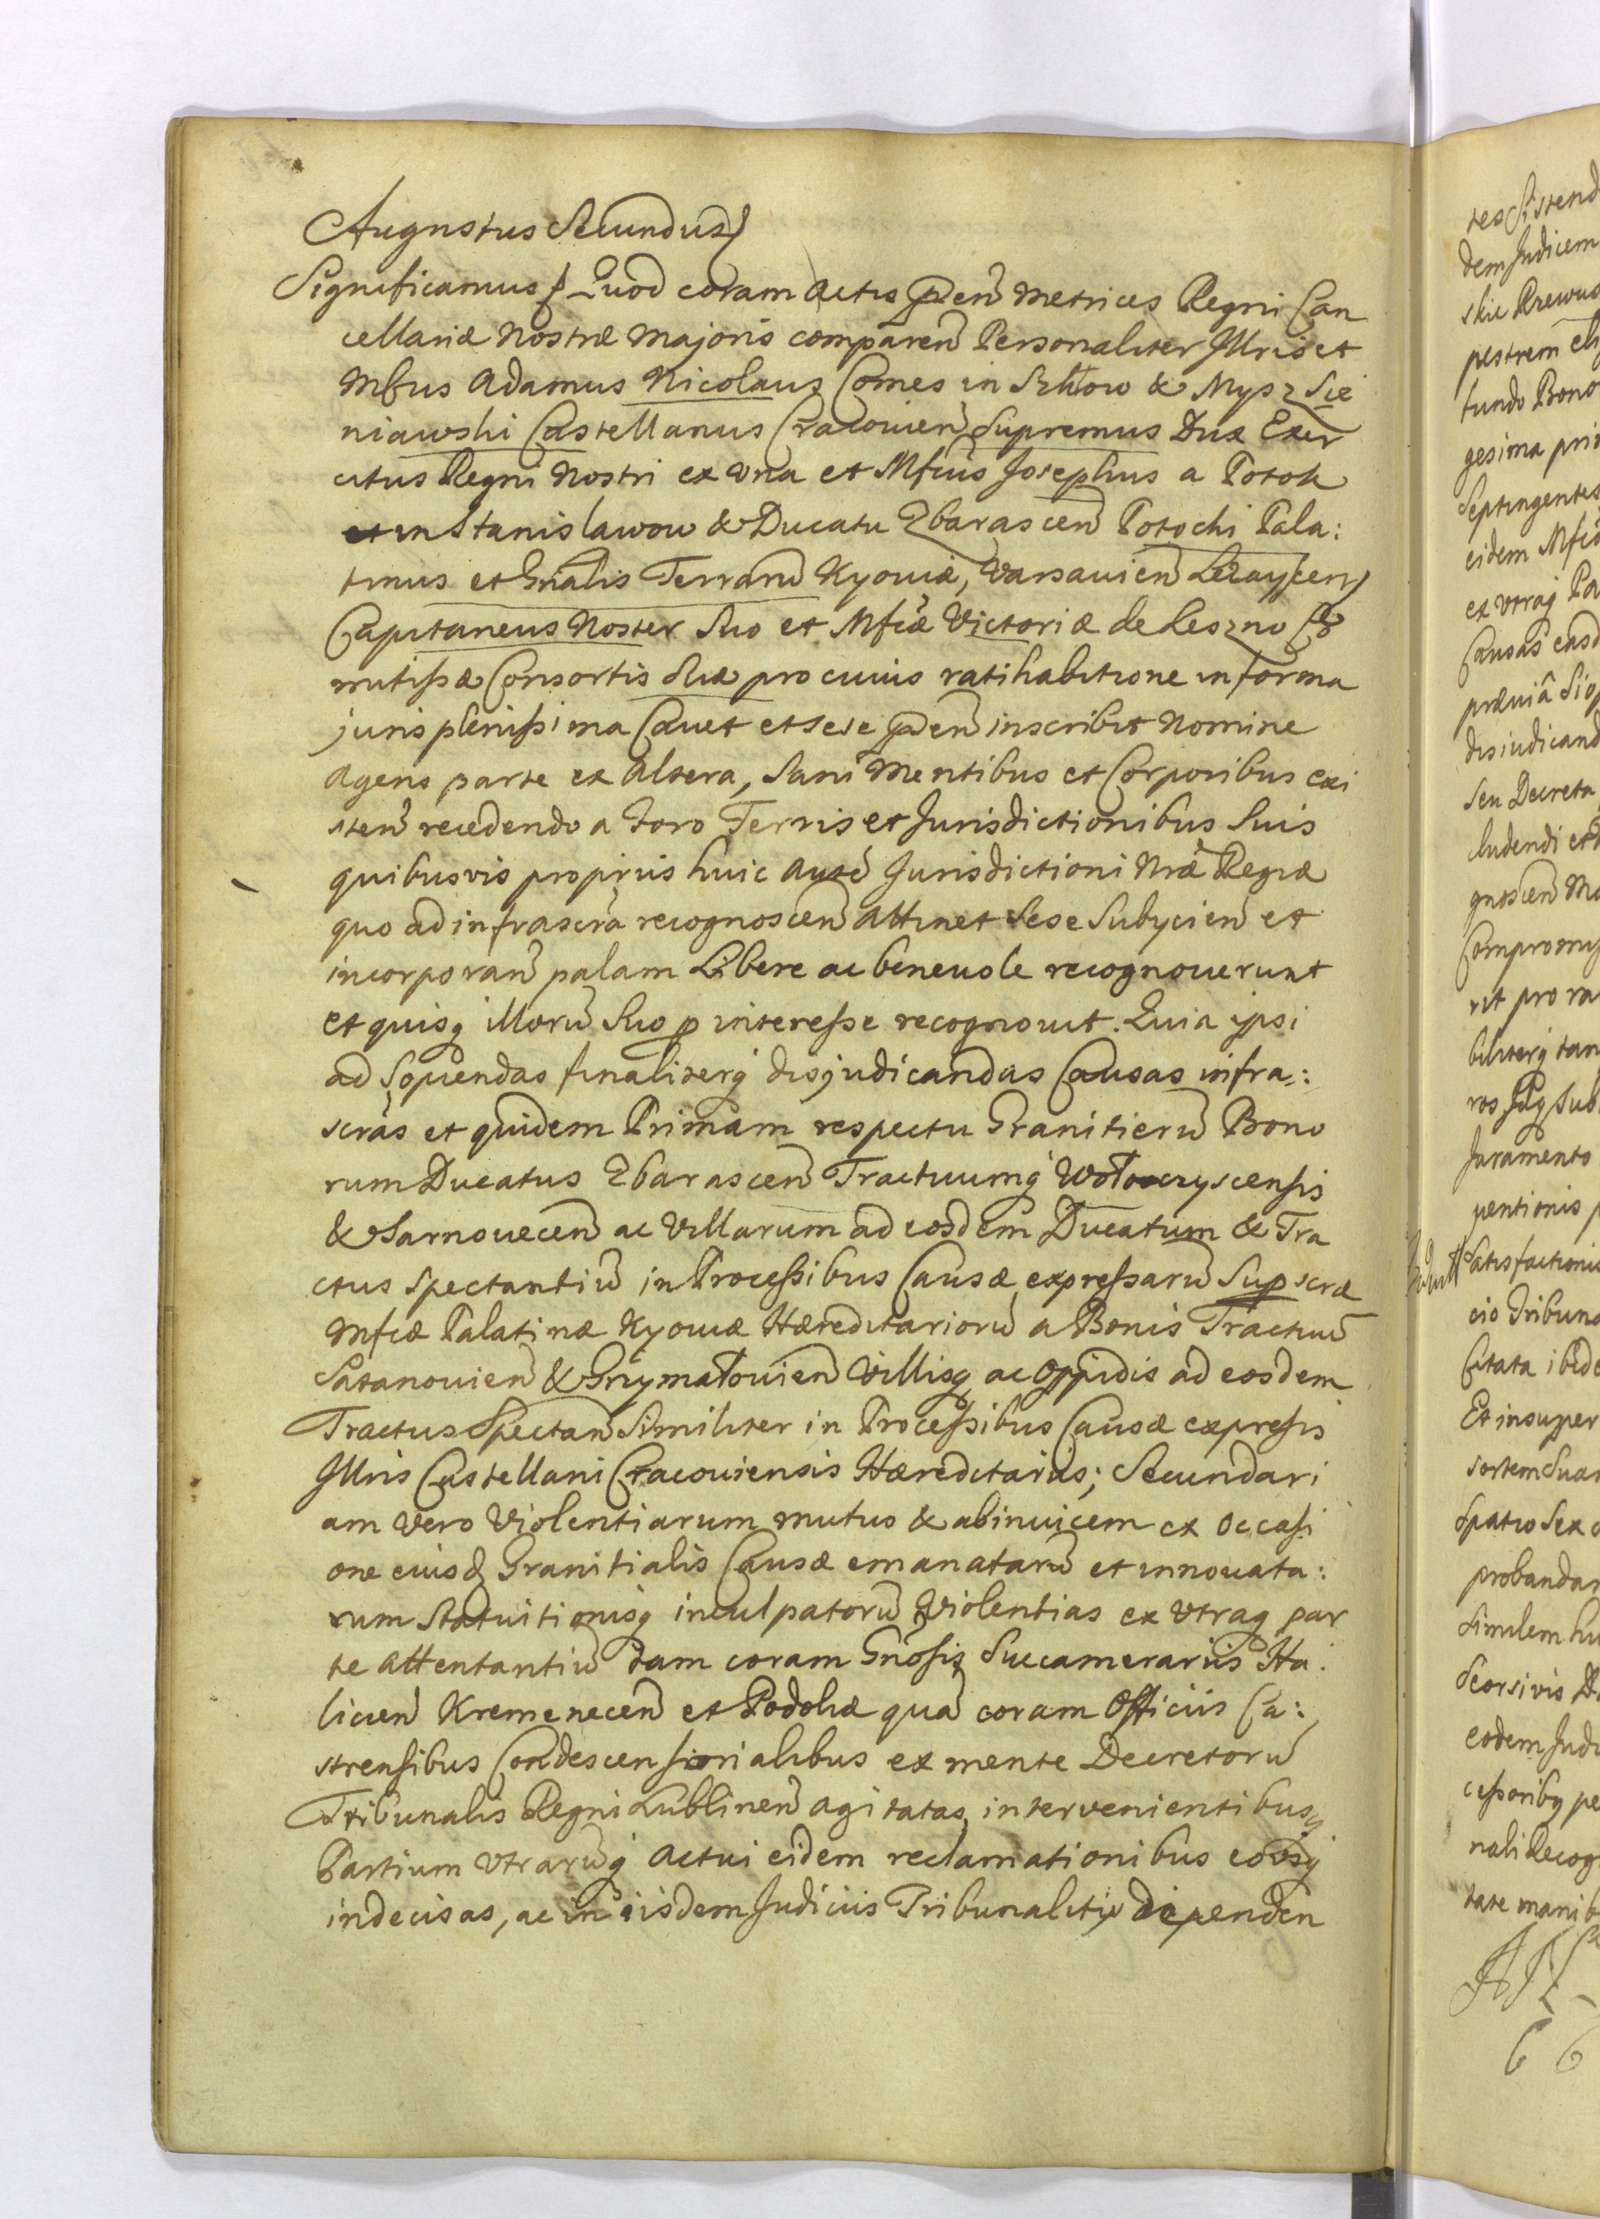 Augustus Secundus
Significamus Quod coram Actis pñten Metrices Regni Can
cellariæ Nostræ Majoris comparen Personaliter Illris et
Mfcus Adamus Nicolaus Comes in Szkłow & Mysz Sie
niawski Castellanus Cracovien Supremus Dux Exer
citus Regni Nostri ex Una et Mfcus Josephus a Potok
et in Stanislawow & Ducatu Zbarascen Potocki Pala:
tinus et Gnalis Terrarũ Kyoviæ, Varsavien Lezaycen
Capitaneus Noster Suo et Mfcæ Victoriæ de Leszno Co
mitissæ Consortis Suæ pro cuius ratihabitione in forma
juris plenissima Cavet et sese pñten inscribit Nomine
Agens parte ex Altera, Sani Mentibus et Corporibus exi
sten recedendo a Foro Terris et Jurisdictionibus Suis
quibusvis proprijs huic autẽ Jurisdictioni Nræ Regiæ
quo ad infrascra recognoscen Attinet Sese Subycien et
incorporan palam Libere ac benevole recognoverunt
et quisq illorũ Suo p interesse recognovit. Quia ipsi
ad Sopiendas finaliterq disjudicandas Causas infra:
scras et quidem Primam respectu Granitierũ Bono
rum Ducatus Zbarascen Tractuumq Wołoczyscensis
& Tarnovecen ac Villarum ad eosdem Ducatum & Tra
ctus Spectantiũ in Processibus Causæ expressarũ Supscræ
Mfcæ Palatinæ Kyoviæ Hæreditariorũ a Bonis Tractuũ
Satanovien & Grzymałovien Villisq ac Oppidis ad eosdem
Tractus Spectan Similiter in Processibus Causæ expressis
Illris Castellani Cracoviensis Hæreditariis; Secundari
am Vero Violentiarum mutuo & abinvicem ex Occasi
one eiusd Granitialis Causæ emanatarũ et innovata:
rum Statuitionisq inculpatorũ Violentias ex Utraq par
te Attentantiũ tam coram Gnosis Succamerariis Ha:
licien Kremenecen et Podoliæ quã coram Officiis Ca:
strensibus Condescensionialibus ex mente Decretorũ
Tribunalis Regni Lublinen agitatas, intervenientibus
Partium Utrarũq Actui eidem reclamationibus eousq
indecisas, ac in iisdem Judiciis Tribunalitiis dependen
tes Sistend
dem Judicem
pestrem
fundo Bono
gesima pri
Septingentes
eidem Mfc
ex Utraq Pa
Causas easd
prævia
disiudicand
Seu Decreta
ludendi et
gnoscen
Compromy
rit pro ra
biliterq tan
Juramento
ventionis
Satisfactionis
cio Tribuna
Citata ibide
Et insuper
sortem Suam
Spatio Sex
probandam
Similem hu
Seorsivis
eodem Judi
cessoribq pe
nali Recog
tate manib